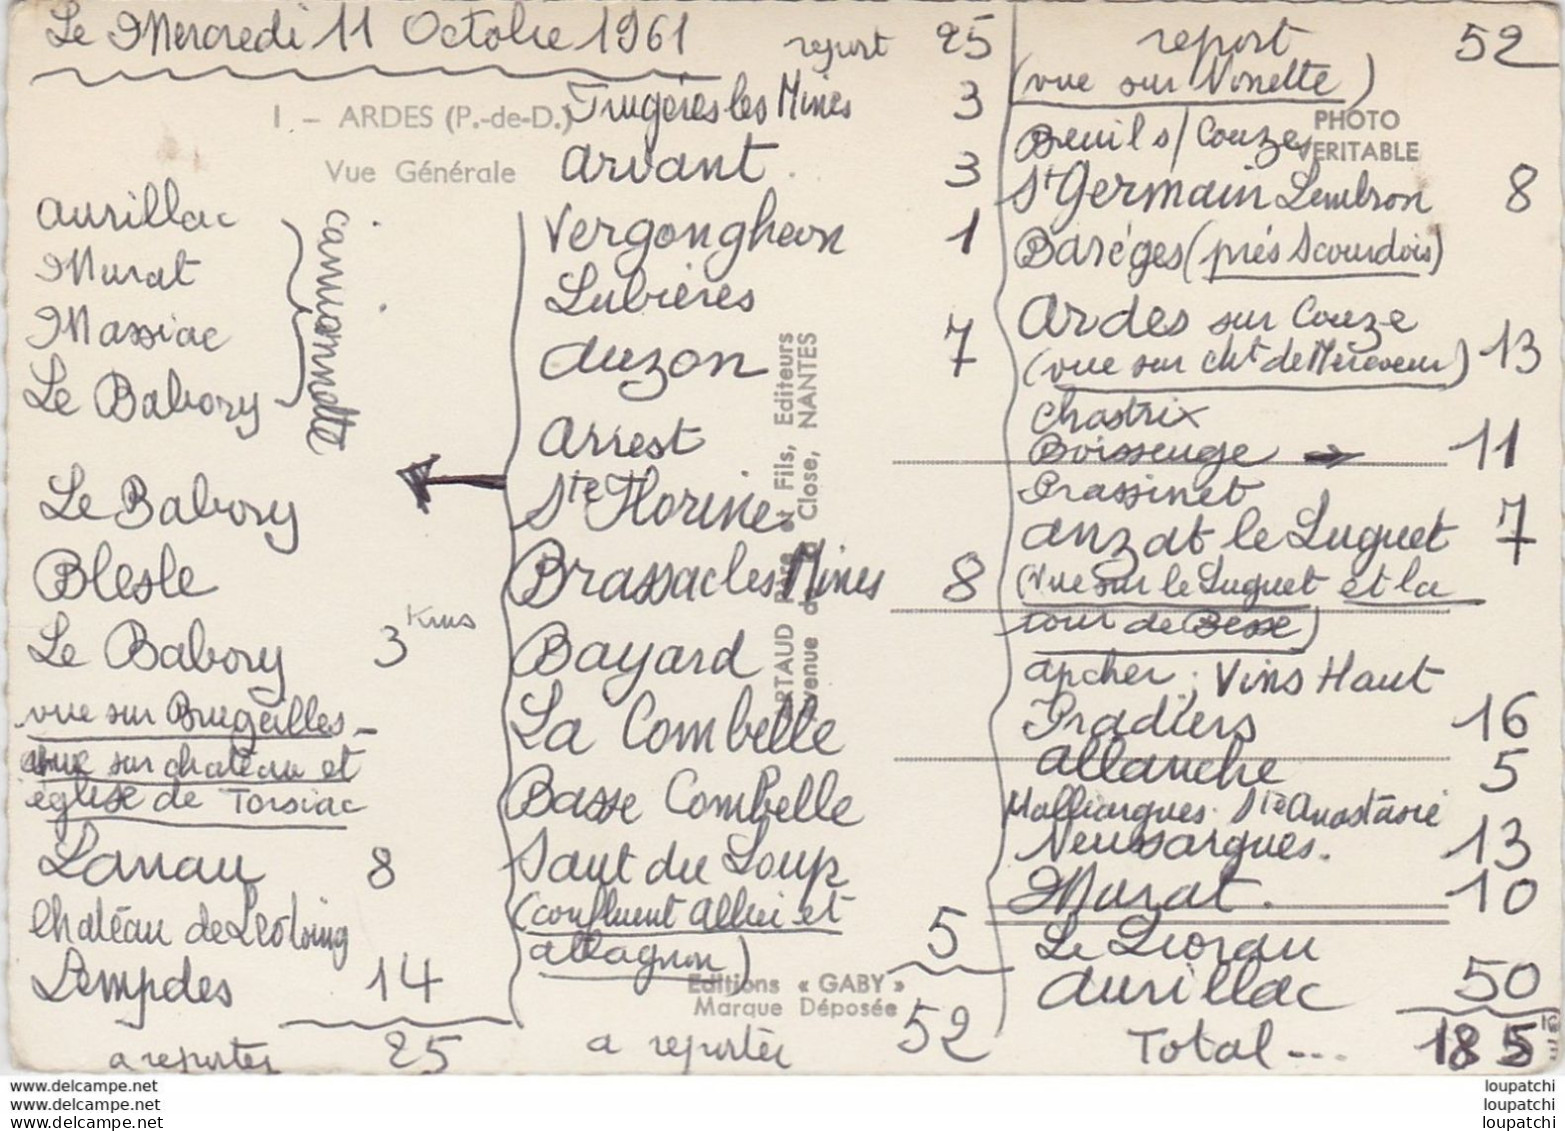 Le Mercredi 11 Octobre 1961
I - ARDES (P.-de-D.)
Vue Générale
Aurillac
Murat
Massiac
Le Babory
camionnette
Le Babory
Blesle
Le Babory 3 Kms
vue sur Brugeilles -
vue sur chateau et
église de Torsiac
Lanau 8
Château de Léotoing
Lempdes 14
a reporter 25
report 25
Frugéres les Mines 3
Arvant 3
Vergongheon 1
Lubières
Auzon 7
Arrest
Ste Florine
Brassac les Mines 8
Bayard
La Combelle
Basse Combelle
Saut du Loup
(confluent Allier et
Allagnon) 5
a reporter 52
Editions « GABY »
Marque Déposée
Fils, Editeurs
Close, NANTES
report 52
(vue sur Nonette)
PHOTO
VERITABLE
Breuil s/ Couze
St Germain Lembron 8
Baréges (prés Scourdois)
Ardes sur Couze
(vue sur cht de Mercoeur) 13
Chastrix
Boisseuge 11
Prassinet
Anzat le Luguet 7
(vue sur le Luguet et la
tour de Besse)
Apcher, Vins Haut
Pradiers 16
Allanche 5
Malliargues. Ste Anastasie
Neussargues. 13
Murat. 10
Le Lioran
Aurillac 50
Total --- 185
loupatchi
loupatchi
loupatchi
www.delcampe.net
www.delcampe.net
www.delcampe.net